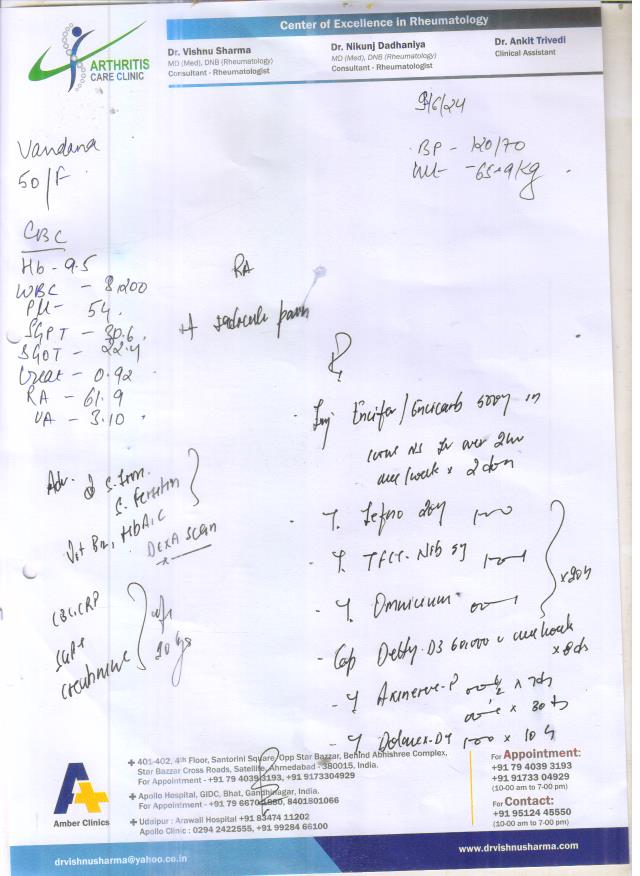 Center of Excellence in Rheumatology
ARTHRITIS
CARE CLINIC
Dr. Vishnu Sharma
MD (Med), DNB (Rheumatology)
Consultant - Rheumatologist
Dr. Nikunj Dadhaniya
MD (Med), DNB (Rheumatology)
Consultant - Rheumatologist
Dr. Ankit Trivedi
Clinical Assistant
9/6/24
Vandana
50/F
BP - 120/70
Wt - 65.9/kg
CBC
Hb - 9.5
WBC - 8200
Plt - 54
SGPT - 30.6
SGOT - 22.4
Creat - 0.92
RA - 61.9
UA - 3.10
RA
Inj Encifer/Encicarb 500mg in
NS IV over 2hr
one/week x 2 dose
Adv. S. Iron
S. Ferritin
Vit B12, HbA1C
DEXA Scan
T. Lefno 20mg
T. TFCT-Nib 5mg
T. Omnicium
x20d
CBC, CRP
SGPT
creatinine
Cap D3 60,000 u one/week
x 8
T. Axinerve-P x 7d
x 30 d
T. Dolonex-DT x 10 d
401-402, 4th Floor, Santorini Square, Opp Star Bazzar, Behind Abhishree Complex,
Star Bazzar Cross Roads, Satellite, Ahmedabad - 380015, India.
For Appointment - +91 79 4039 3193, +91 9173304929
Apollo Hospital, GIDC, Bhat, Gandhinagar, India.
For Appointment - +91 79 6670 1880, 8401801066
Udaipur : Arawali Hospital +91 83474 11202
Apollo Clinic : 0294 2422555, +91 99284 66100
Amber Clinics
For Appointment:
+91 79 4039 3193
+91 91733 04929
(10-00 am to 7-00 pm)
For Contact:
+91 95124 45550
(10-00 am to 7-00 pm)
drvishnusharma@yahoo.co.in
www.drvishnusharma.com